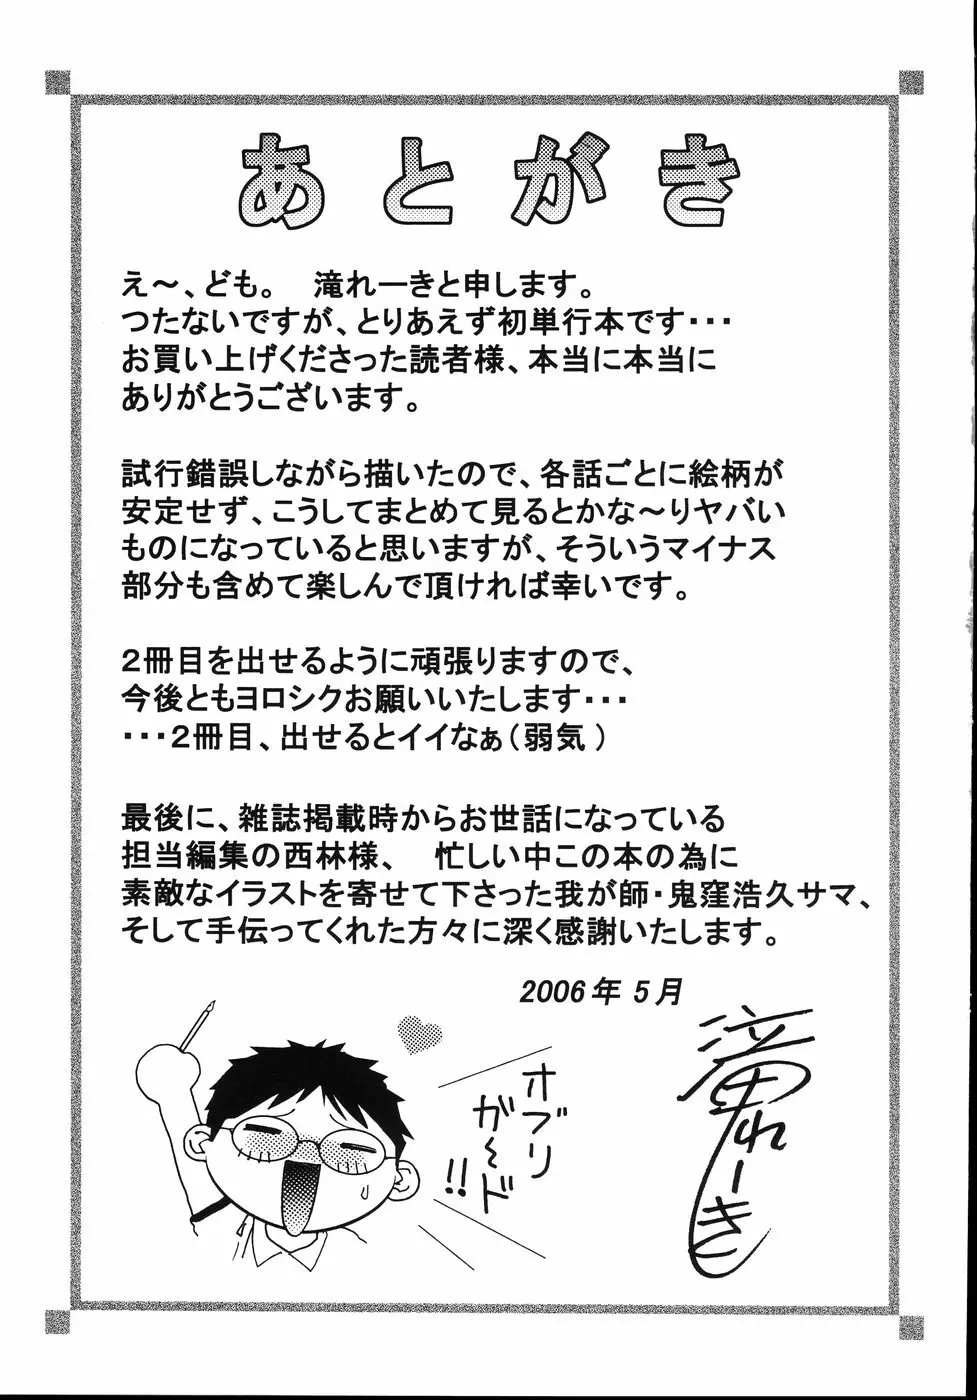 あとがき
え～、ども。　滝れーきと申します。
つたないですが、とりあえず初単行本です・・・
お買い上げくださった読者様、本当に本当に
ありがとうございます。
試行錯誤しながら描いたので、各話ごとに絵柄が
安定せず、こうしてまとめて見るとかな～りヤバい
ものになっていると思いますが、そういうマイナス
部分も含めて楽しんで頂ければ幸いです。
２冊目を出せるように頑張りますので、
今後ともヨロシクお願いいたします・・・
・・・２冊目、出せるとイイなぁ（弱気）
最後に、雑誌掲載時からお世話になっている
担当編集の西林様、　忙しい中この本の為に
素敵なイラストを寄せて下さった我が師・鬼窪浩久サマ、
そして手伝ってくれた方々に深く感謝いたします。
2006年 5月
オブリ
が～ド
!!
滝れーき